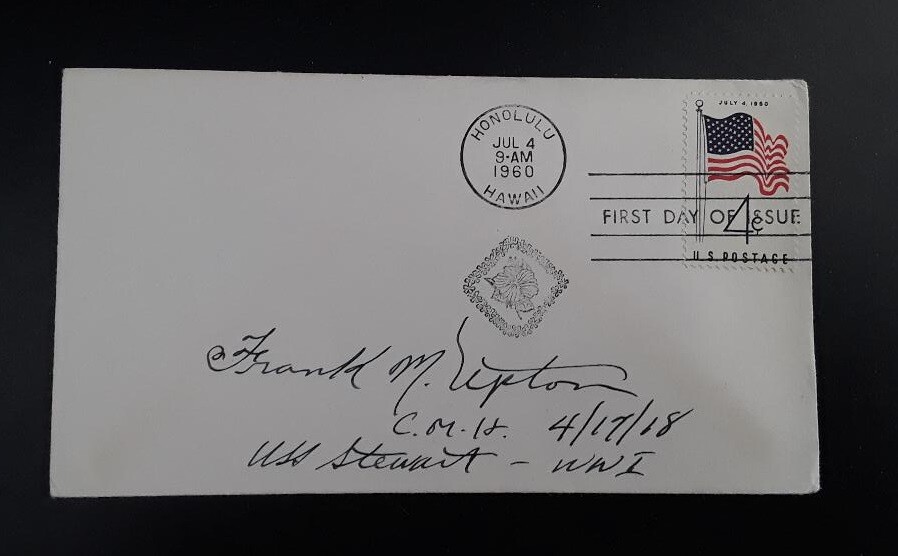 JULY 4, 1960
HONOLULU
JUL 4
9-AM
1960
HAWAII
FIRST DAY OF ISSUE
4¢
U.S. POSTAGE
Frank M. Upton
C.M.H. 4/17/18
USS Stewart - WWI